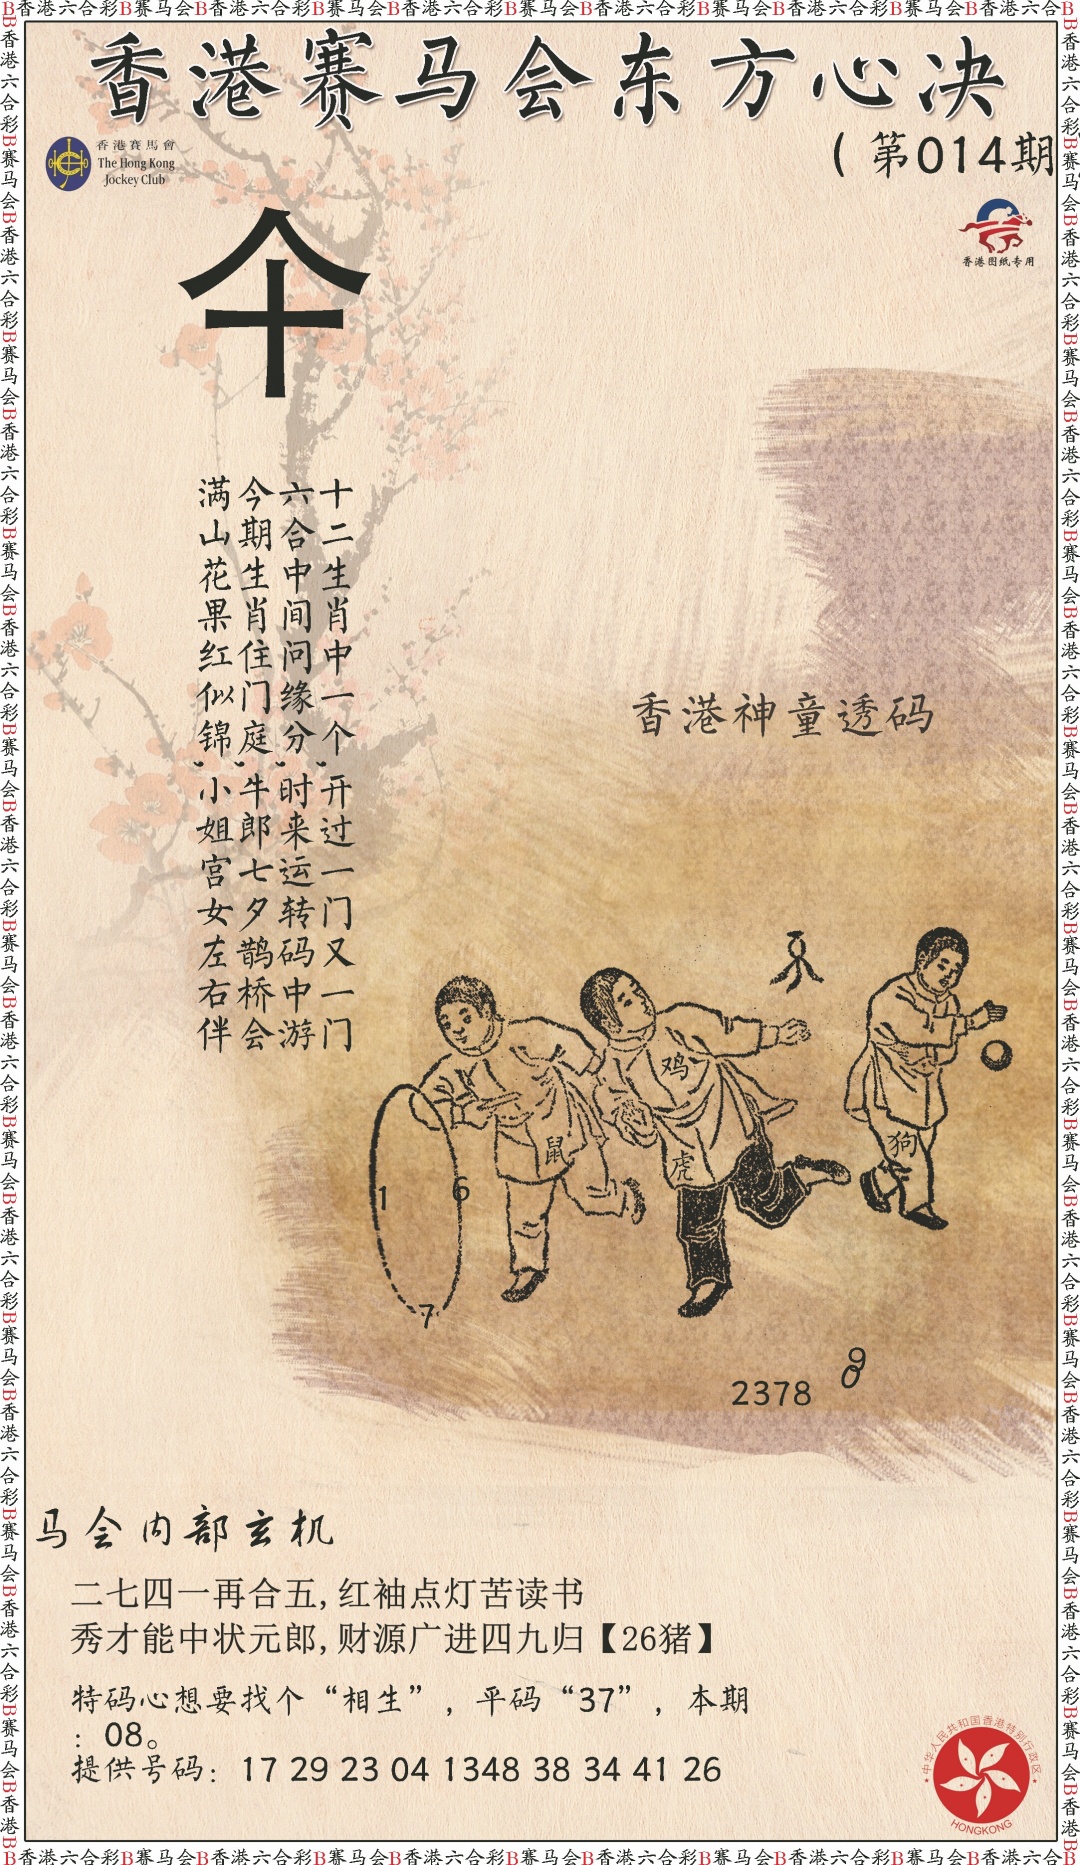 B香港六合彩B赛马会B香港六合彩B赛马会B香港六合彩B赛马会B香港六合彩B赛马会B香港六合彩B赛马会B香港六合B
香港赛马会东方心决
(第014期
香港賽馬會
The Hong Kong
Jockey Club
香港图纸专用
仐
十二生肖中一个,开过一门又一门
六合中间问缘分,时来运转码中游
今期生肖住门庭,牛郎七夕鹊桥会
满山花果红似锦,小姐宫女左右伴
香港神童透码
鸡
鼠
虎
狗
1
6
7
9
0
2378
马会内部玄机
二七四一再合五,红袖点灯苦读书
秀才能中状元郎,财源广进四九归【26猪】
特码心想要找个“相生”，平码“37”，本期
：08。
提供号码：17 29 23 04 1348 38 34 41 26
中华人民共和国香港特别行政区
HONGKONG
B香港六合彩B赛马会B香港六合彩B赛马会B香港六合彩B赛马会B香港六合彩B赛马会B香港六合彩B赛马会B香港六合彩B